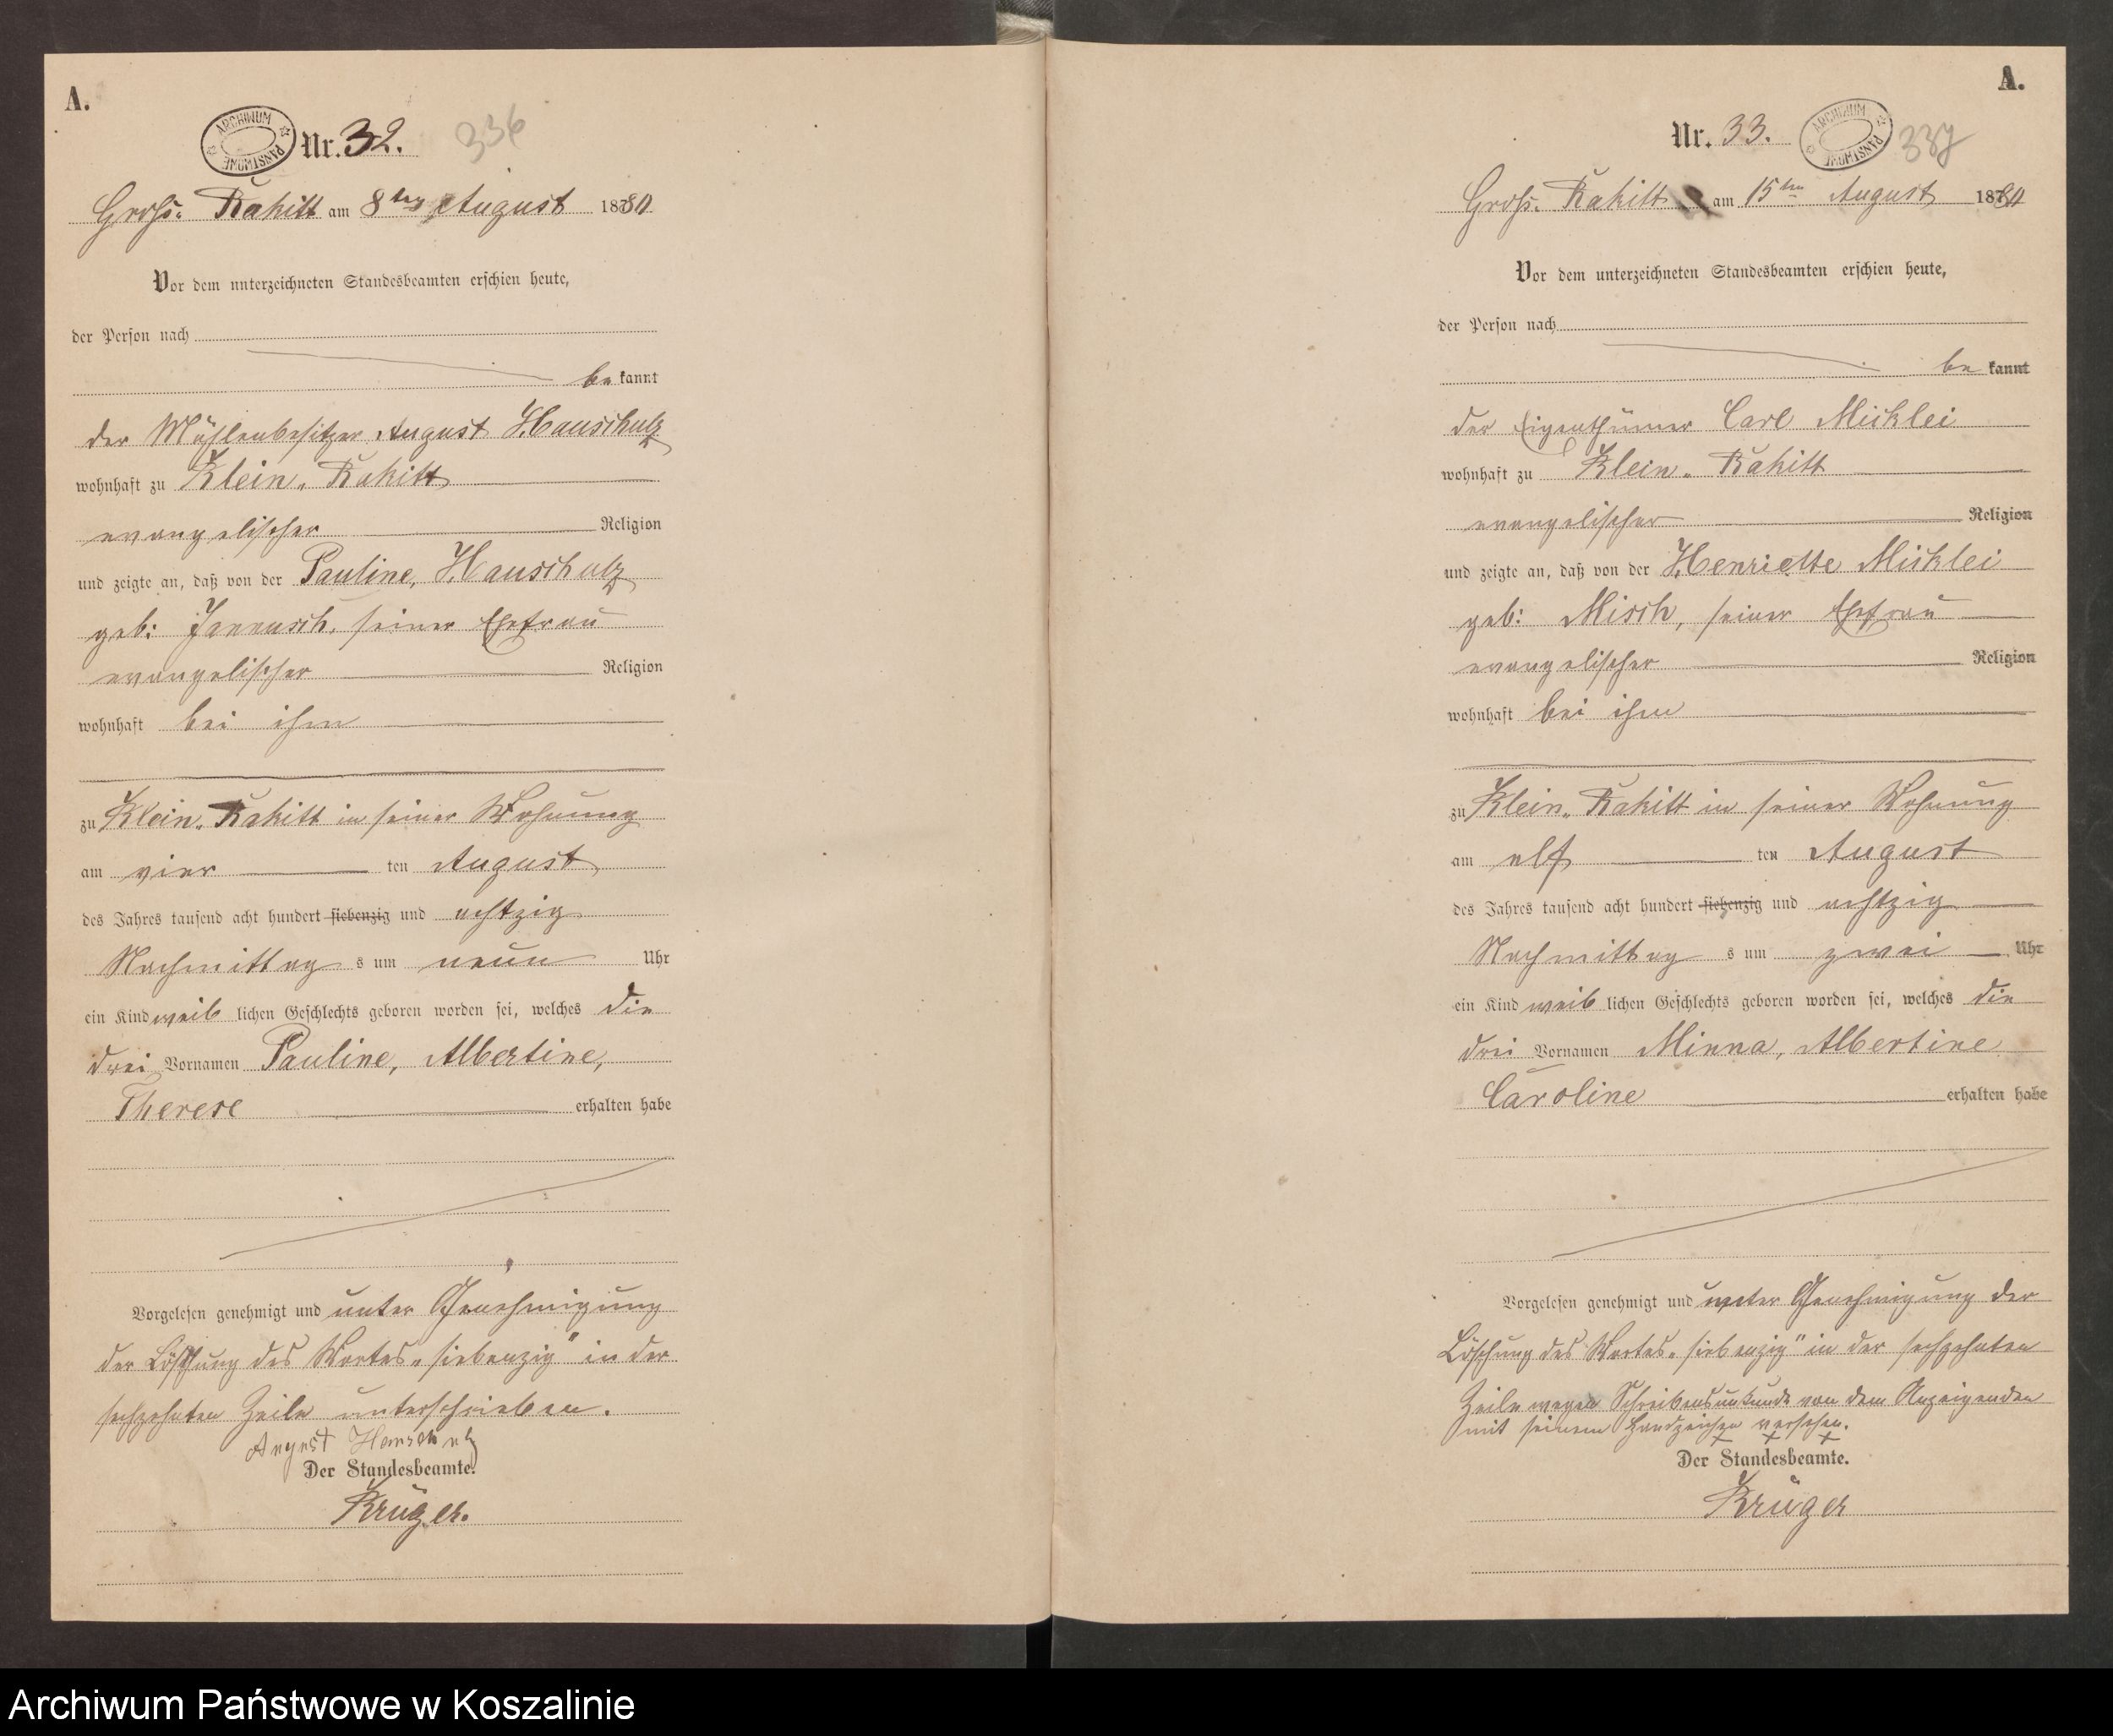 A.
ARCHIWUM PAŃSTWOWE
Nr. 32.
336
Gross-Rakitt am 8ten August 1880
Vor dem unterzeichneten Standesbeamten erschien heute,
der Person nach
be kannt
der Mühlenbesitzer August Hauschulz
wohnhaft zu Klein-Rakitt
evangelischer Religion
und zeigte an, daß von der Pauline, Hauschulz
geb: Jannusch, seiner Ehefrau
evangelischer Religion
wohnhaft bei ihm
zu Klein-Rakitt in seiner Wohnung
am vier ten August
des Jahres tausend acht hundert siebenzig und achtzig
Nachmittag s um neun Uhr
ein Kind weib lichen Geschlechts geboren worden sei, welches die
drei Vornamen Pauline, Albertine,
Therese erhalten habe
Vorgelesen genehmigt und unter Genehmigung
der Löschung des Wortes „siebenzig" in der
sechzehnten Zeile unterschrieben.
August Hauschulz
Der Standesbeamte.
Krüger.
A.
Nr. 33.
ARCHIWUM PAŃSTWOWE
337
Gross-Rakitt am 15ten August 1880
Vor dem unterzeichneten Standesbeamten erschien heute,
der Person nach
be kannt
der Eigenthümer Carl Micklei
wohnhaft zu Klein-Rakitt
evangelischer Religion
und zeigte an, daß von der Henriette Micklei
geb: Misch, seiner Ehefrau
evangelischer Religion
wohnhaft bei ihm
zu Klein-Rakitt in seiner Wohnung
am elf ten August
des Jahres tausend acht hundert siebenzig und achtzig
Nachmittag s um zwei Uhr
ein Kind weib lichen Geschlechts geboren worden sei, welches die
drei Vornamen Minna, Albertine
Caroline erhalten habe
Vorgelesen genehmigt und unter Genehmigung der
Löschung des Wortes „siebenzig" in der sechzehnten
Zeile wegen Schreibensunkunde von dem Anzeigenden
mit seinem Handzeichen versehen.
+ + +
Der Standesbeamte.
Krüger
Archiwum Państwowe w Koszalinie